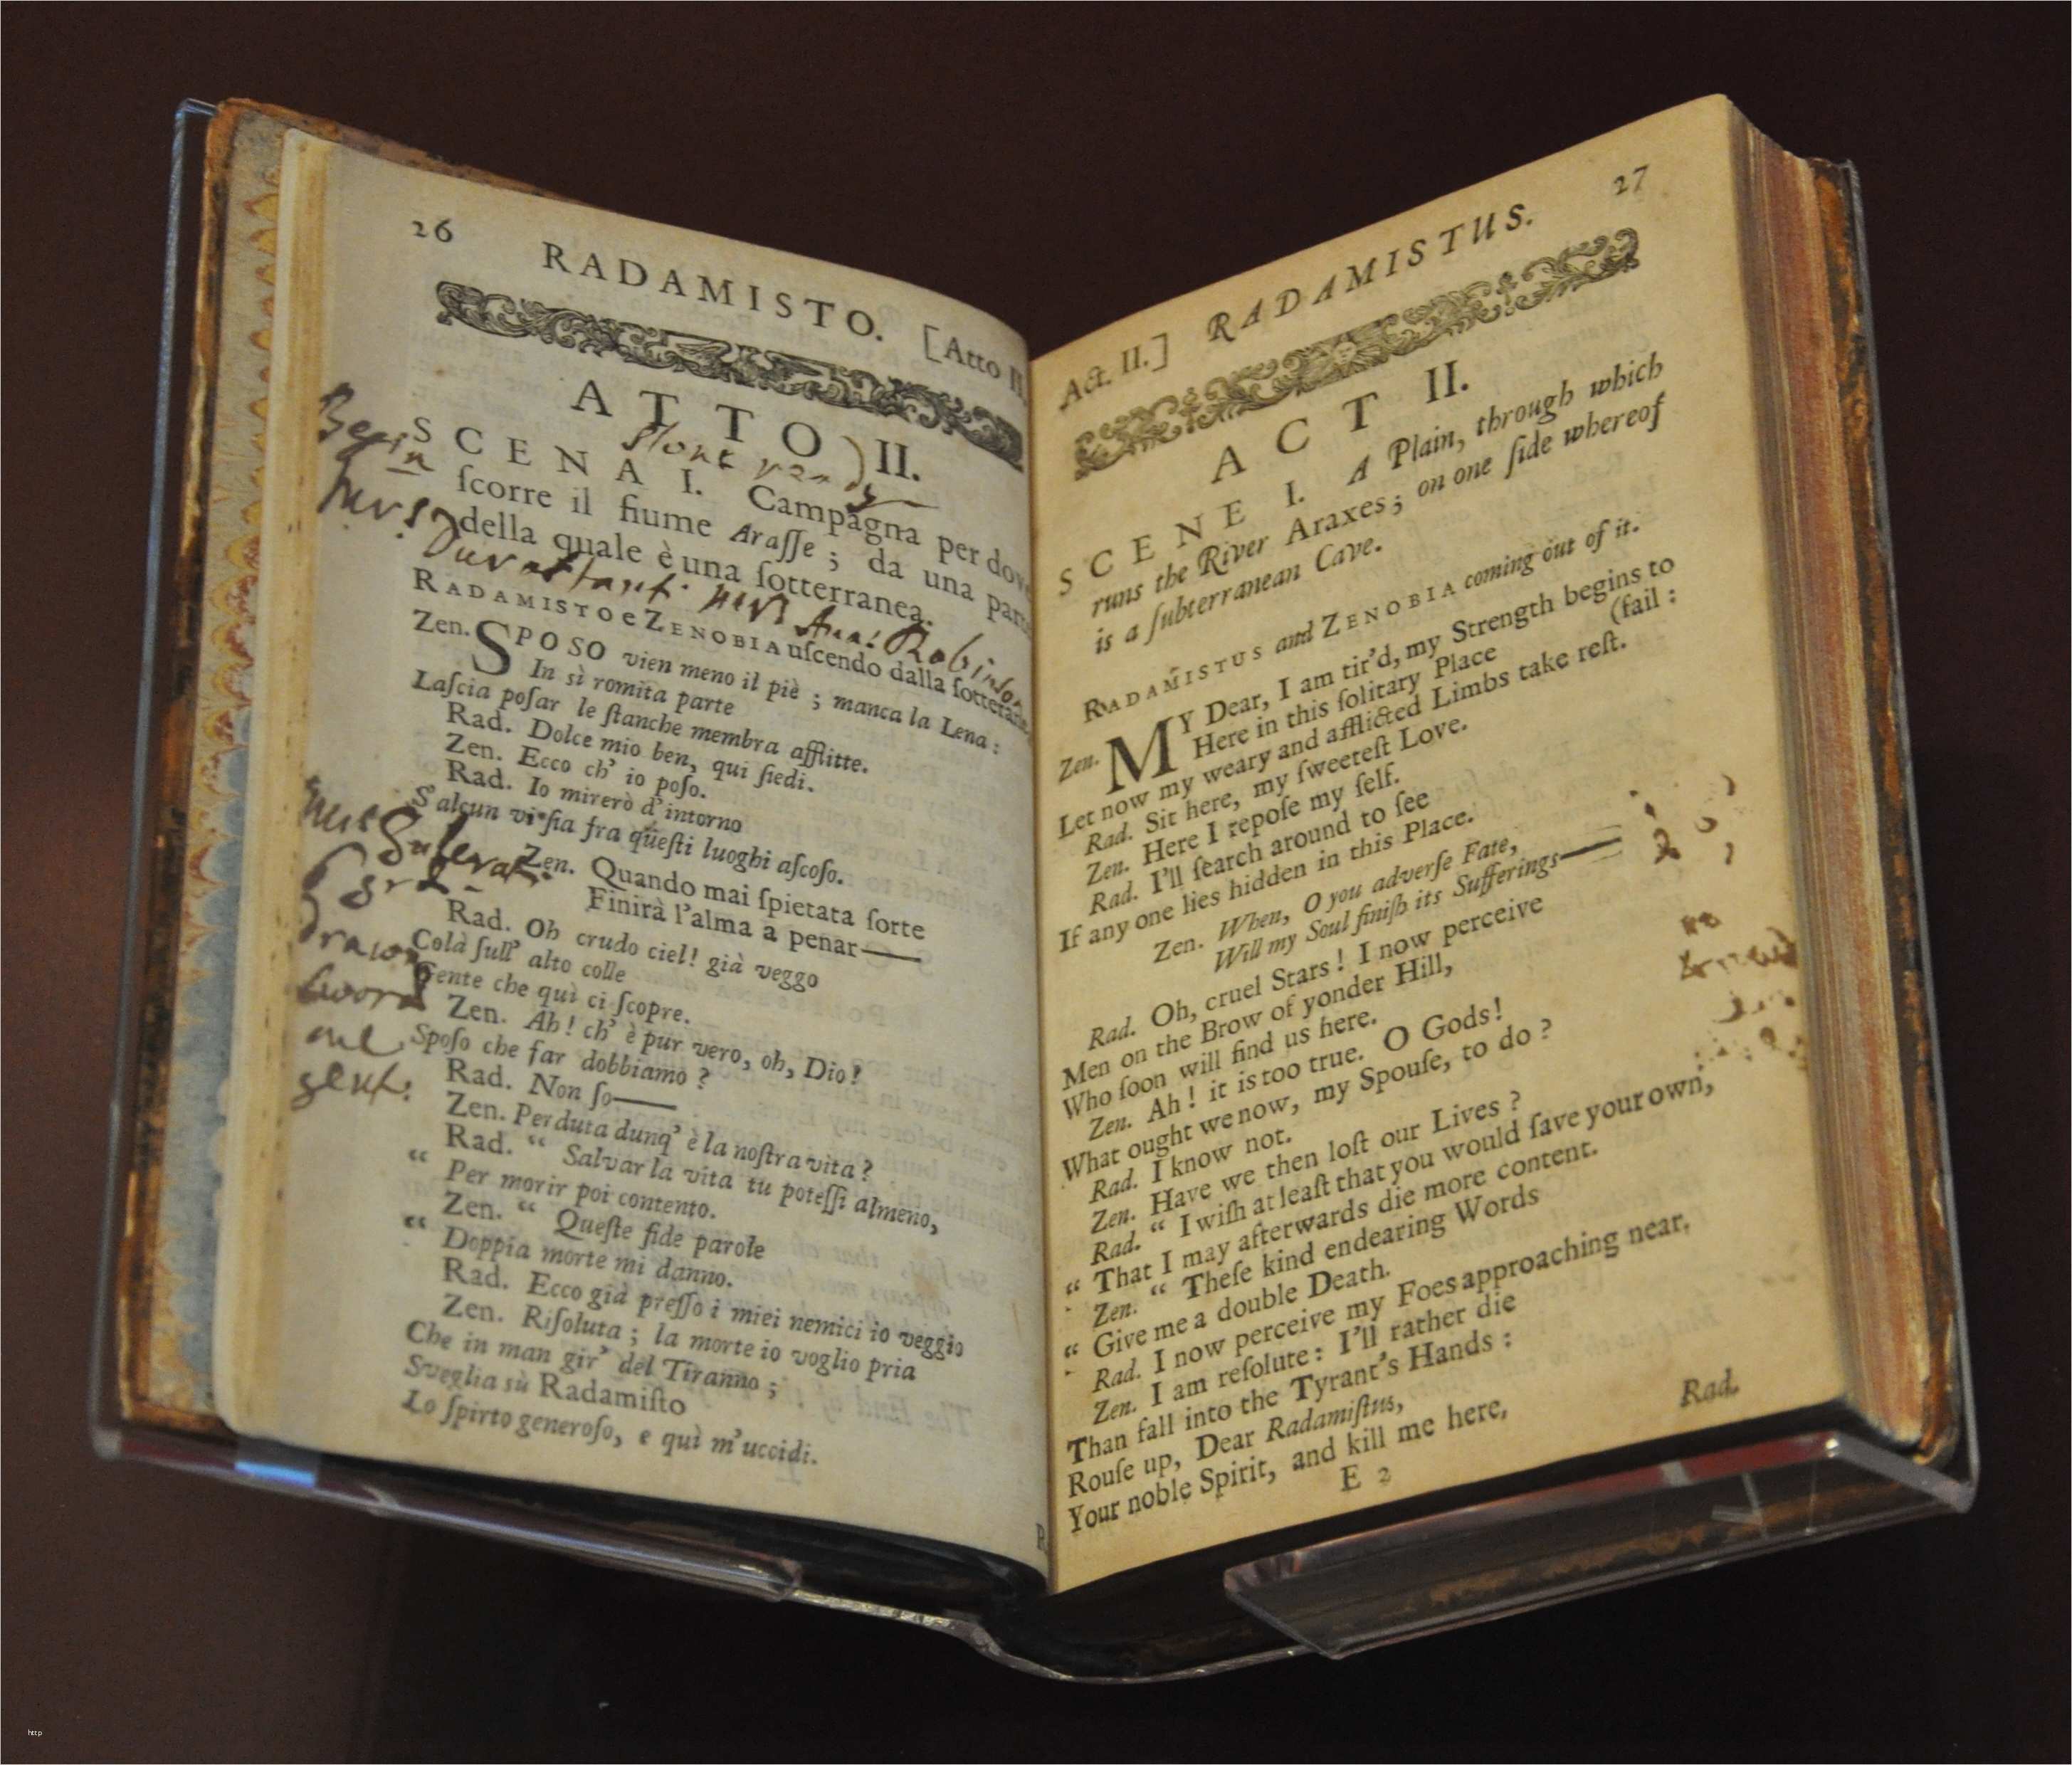 26 RADAMISTO. [Atto II.
ATTO II.
Stone ready
Begin
SCENA I. Campagna per dove
ſcorre il fiume Araſſe; da una parte
della quale è una ſotterranea.
Durastanti Mrs Ana: Robinson
RADAMISTO e ZENOBIA uſcendo dalla ſotterranea
Zen. SPOSO vien meno il piè; manca la Lena:
In sì romita parte
Laſcia poſar le ſtanche membra afflitte.
Rad. Dolce mio ben, quì ſiedi.
Zen. Ecco ch' io poſo.
Rad. Io mirerò d'intorno
S'alcun vi ſia fra queſti luoghi aſcoſo.
Zen. Quando mai ſpietata ſorte
Finirà l'alma a penar——
Rad. Oh crudo ciel! già veggo
Colà ſull' alto colle
Gente che quì ci ſcopre.
Zen. Ah! ch' è pur vero, oh, Dio!
Spoſo che far dobbiamo?
Rad. Non ſo——
Zen. Perduta dunq' è la noſtra vita?
Rad. “ Salvar la vita tu poteſſi almeno,
“ Per morir poi contento.
Zen. “ Queſte fide parole
“ Doppia morte mi danno.
Rad. Ecco già preſſo i miei nemici io veggio
Zen. Riſoluta; la morte io voglio pria
Che in man gir' del Tiranno;
Sveglia sù Radamiſto
Lo ſpirto generoſo, e quì m'uccidi.
drawn
sword
Act. II.] RADAMISTUS. 27
ACT II.
SCENE I. A Plain, through which
runs the River Araxes; on one ſide whereof
is a ſubterranean Cave.
RADAMISTUS and ZENOBIA coming out of it.
Zen. MY Dear, I am tir'd, my Strength begins to
(fail:
Here in this ſolitary Place
Let now my weary and afflicted Limbs take reſt.
Rad. Sit here, my ſweeteſt Love.
Zen. Here I repoſe my ſelf.
Rad. I'll ſearch around to ſee
If any one lies hidden in this Place.
Zen. When, O you adverſe Fate,
Will my Soul finiſh its Sufferings——
Rad. Oh, cruel Stars! I now perceive
Men on the Brow of yonder Hill,
Who ſoon will find us here.
Zen. Ah! it is too true. O Gods!
What ought we now, my Spouſe, to do?
Rad. I know not.
Zen. Have we then loſt our Lives?
Rad. “ I wiſh at leaſt that you would ſave your own,
“ That I may afterwards die more content.
Zen. “ Theſe kind endearing Words
“ Give me a double Death.
Rad. I now perceive my Foes approaching near.
Zen. I am reſolute: I'll rather die
Than fall into the Tyrant's Hands:
Rouſe up, Dear Radamiſtus,
Your noble Spirit, and kill me here.
E 2 Rad.
http